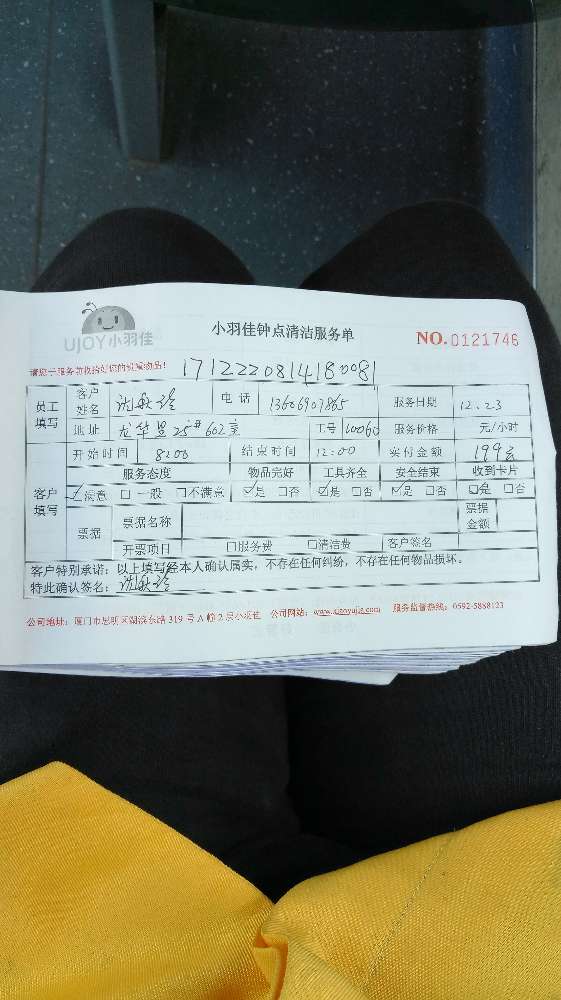 UJOY小羽佳
小羽佳钟点清洁服务单
NO.0121746
请您于服务前收拾好您的贵重物品!
1712220814180081
员工填写 客户姓名 电话 13606907865 服务日期 12.23
地址 龙华里25#602室 工号 服务价格 元/小时
客户填写 开始时间 8:00 结束时间 12:00 实付金额 199元
服务态度 物品完好 工具齐全 安全结束 收到卡片
☑满意 □一般 □不满意 ☑是 □否 ☑是 □否 ☑是 □否 ☑是 □否
票据 票据名称 票据金额
开票项目 □服务费 □清洁费 客户签名
客户特别承诺:以上填写经本人确认属实,不存在任何纠纷,不存在任何物品损坏。
特此确认签名:
公司地址:厦门市思明区湖滨东路319号A幢2层小羽佳 公司网站:www.xiaoyujia.com 服务监督热线:0592-5888123